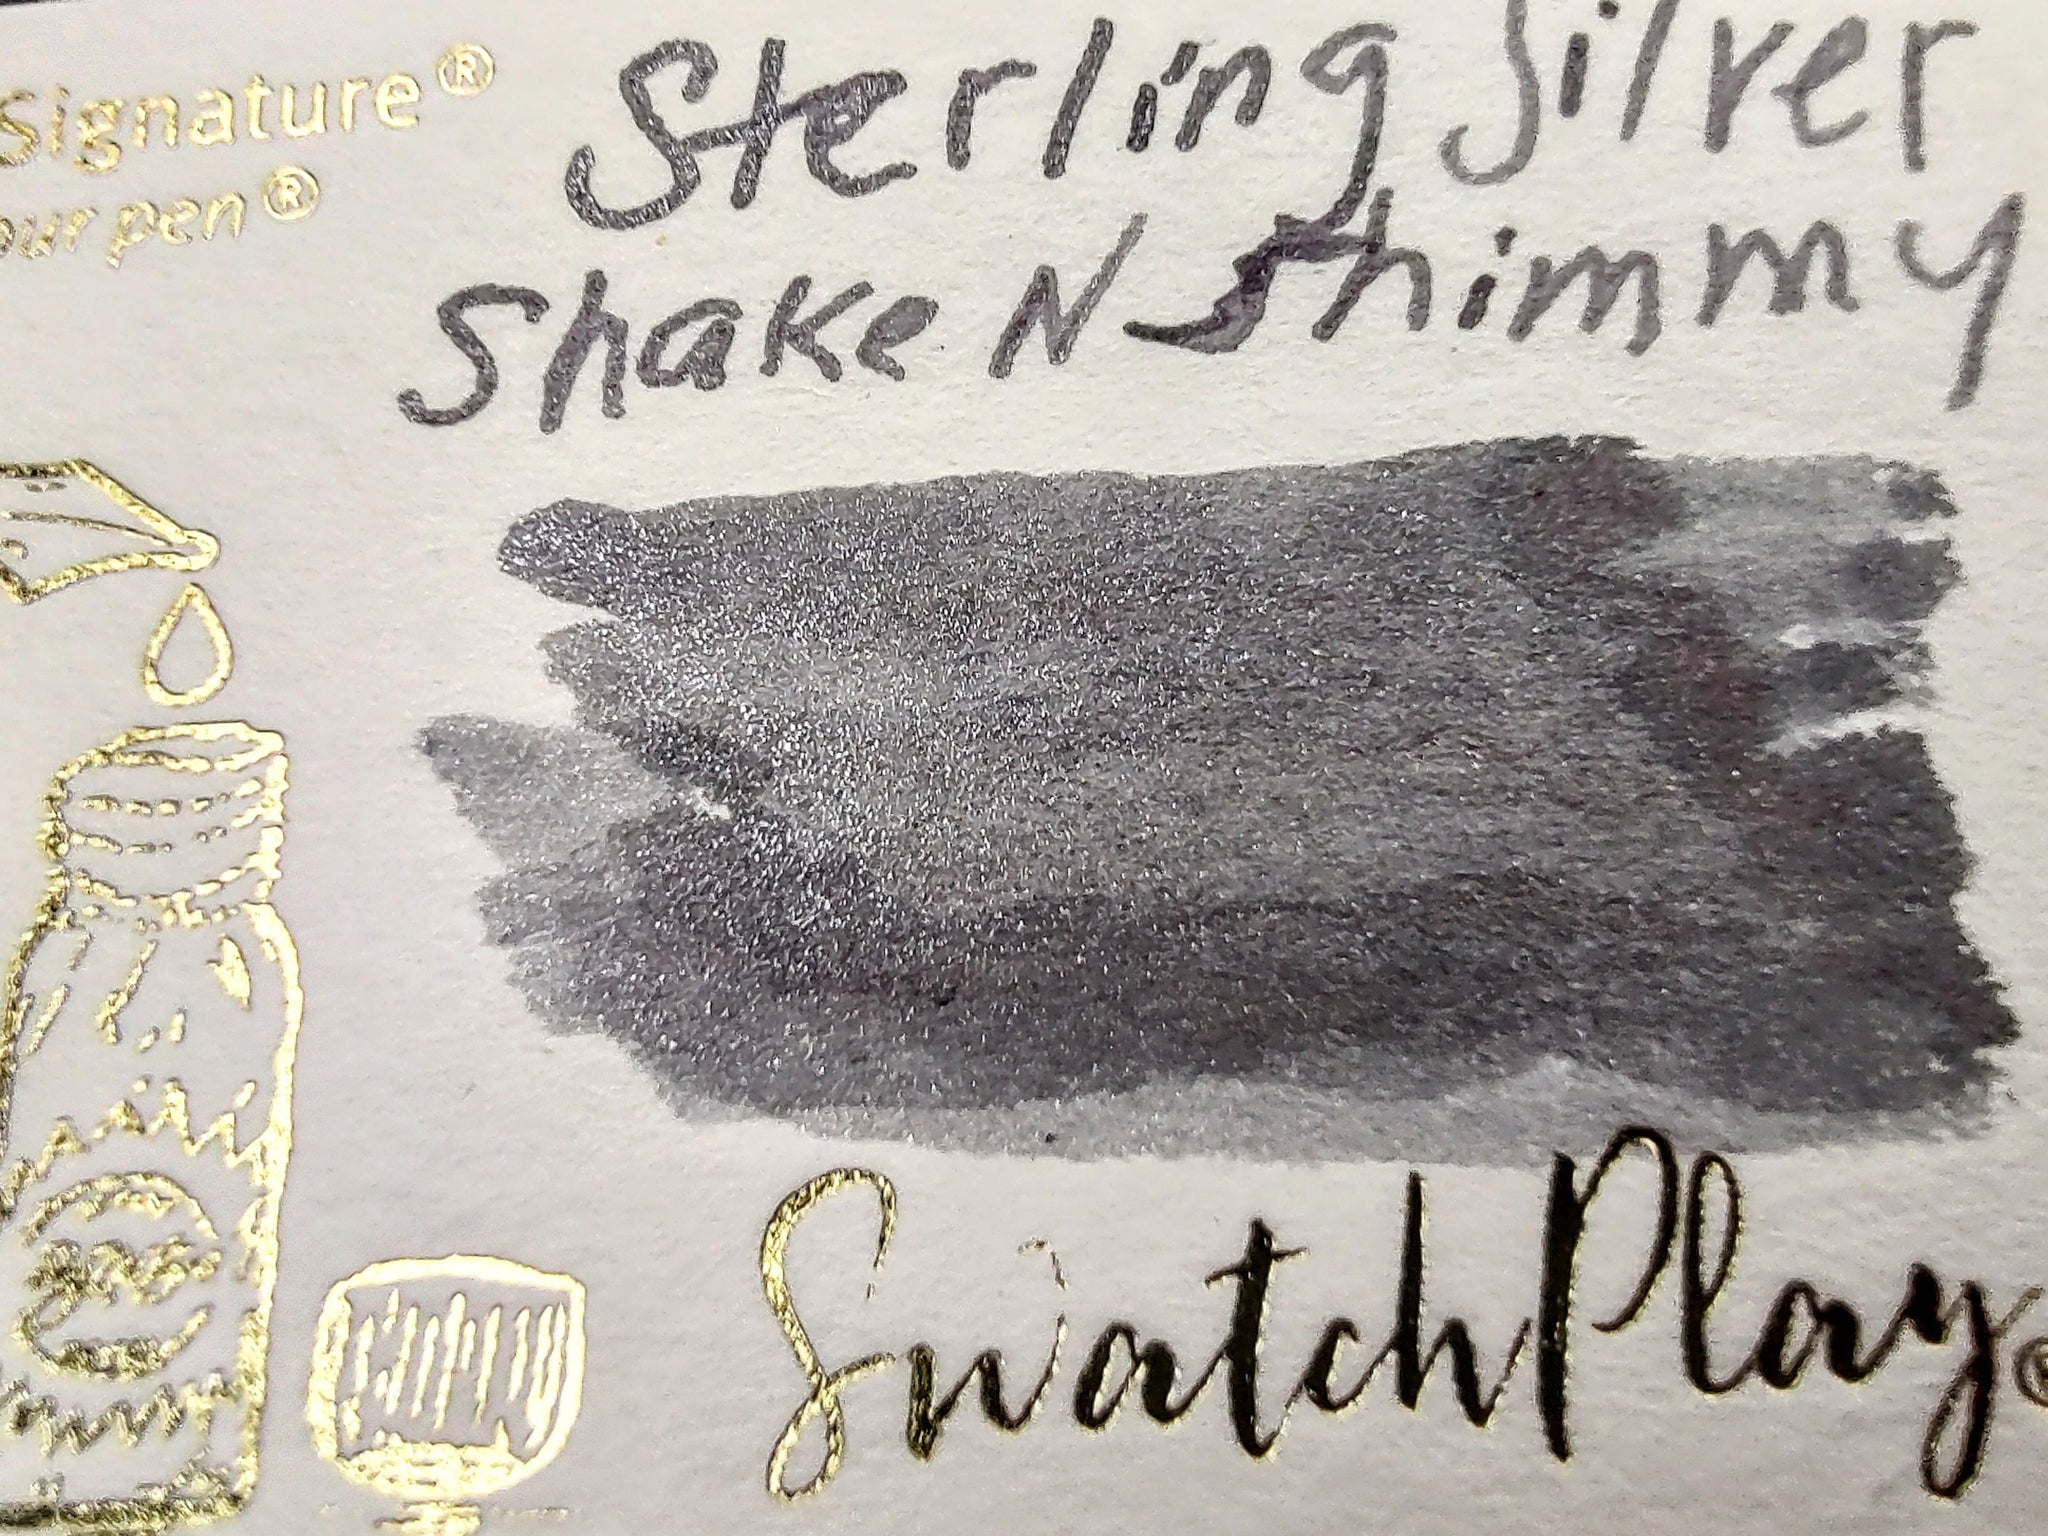 Signature®
our pen®
Sterling Silver
Shake N Shimmy
SwatchPlay®